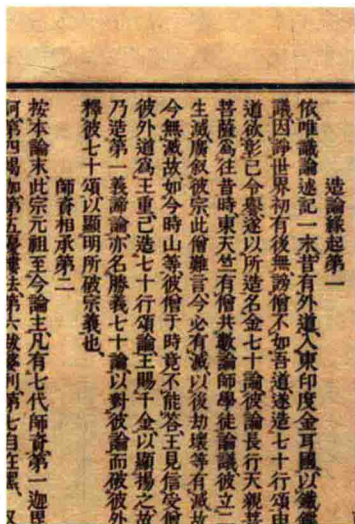 造論緣起第一
依唯識論述記一末昔有外道入東印度金耳國以鐵鍱
議因諍世界初有後無謗僧不如吾道遂造七十行頌申
道欲彰己令譽遂以所造名金七十論彼論長行天親菩
菩薩爲往昔時東天竺有僧共數論師學徒論議彼立二
生滅廣叙彼宗此僧難言今必有滅以後劫壞等有滅故
今無滅故如今時山等彼僧于時竟不能答王見信受僧
彼外道爲王重己造七十行頌論王賜千金以顯揚之故
乃造第一義諦論亦名勝義七十論以對彼論而破彼外
釋彼七十頌以顯明所破宗義也
師資相承第二
按本論末此宗元祖至今論主凡有七代師資第一迦毘
何第四褐伽第五優樓佉第六跋婆利第七自在黑又